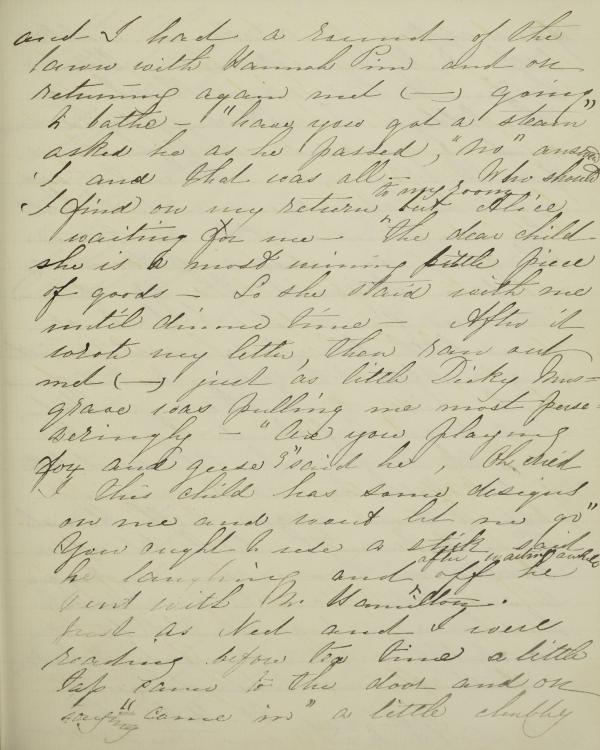 and I had a round of the
lawn with Hannah Pim and on
returning again met (—) going
to bathe — "have you got a steam"
asked he as he passed, "no" answered
I and that was all — Who should
I find on my return to my room but Alice
waiting for me — the dear child
she is a most winning little piece
of goods — So she staid with me
until dinner time — After it
wrote my letter, then ran out
met (—) just as little Dicky Mus=
grave was pulling me most perse=
veringly — "Are you playing
fox and geese?" said he, Oh cried
I this child has some designs
on me and wont let me go"
You ought to use a stick said
he laughing and after waiting awhile off he
went with Mr. Hamilton.
Just as Ned and I were
reading before tea time a little
tap came to the door and on
saying "come in" a little chubby